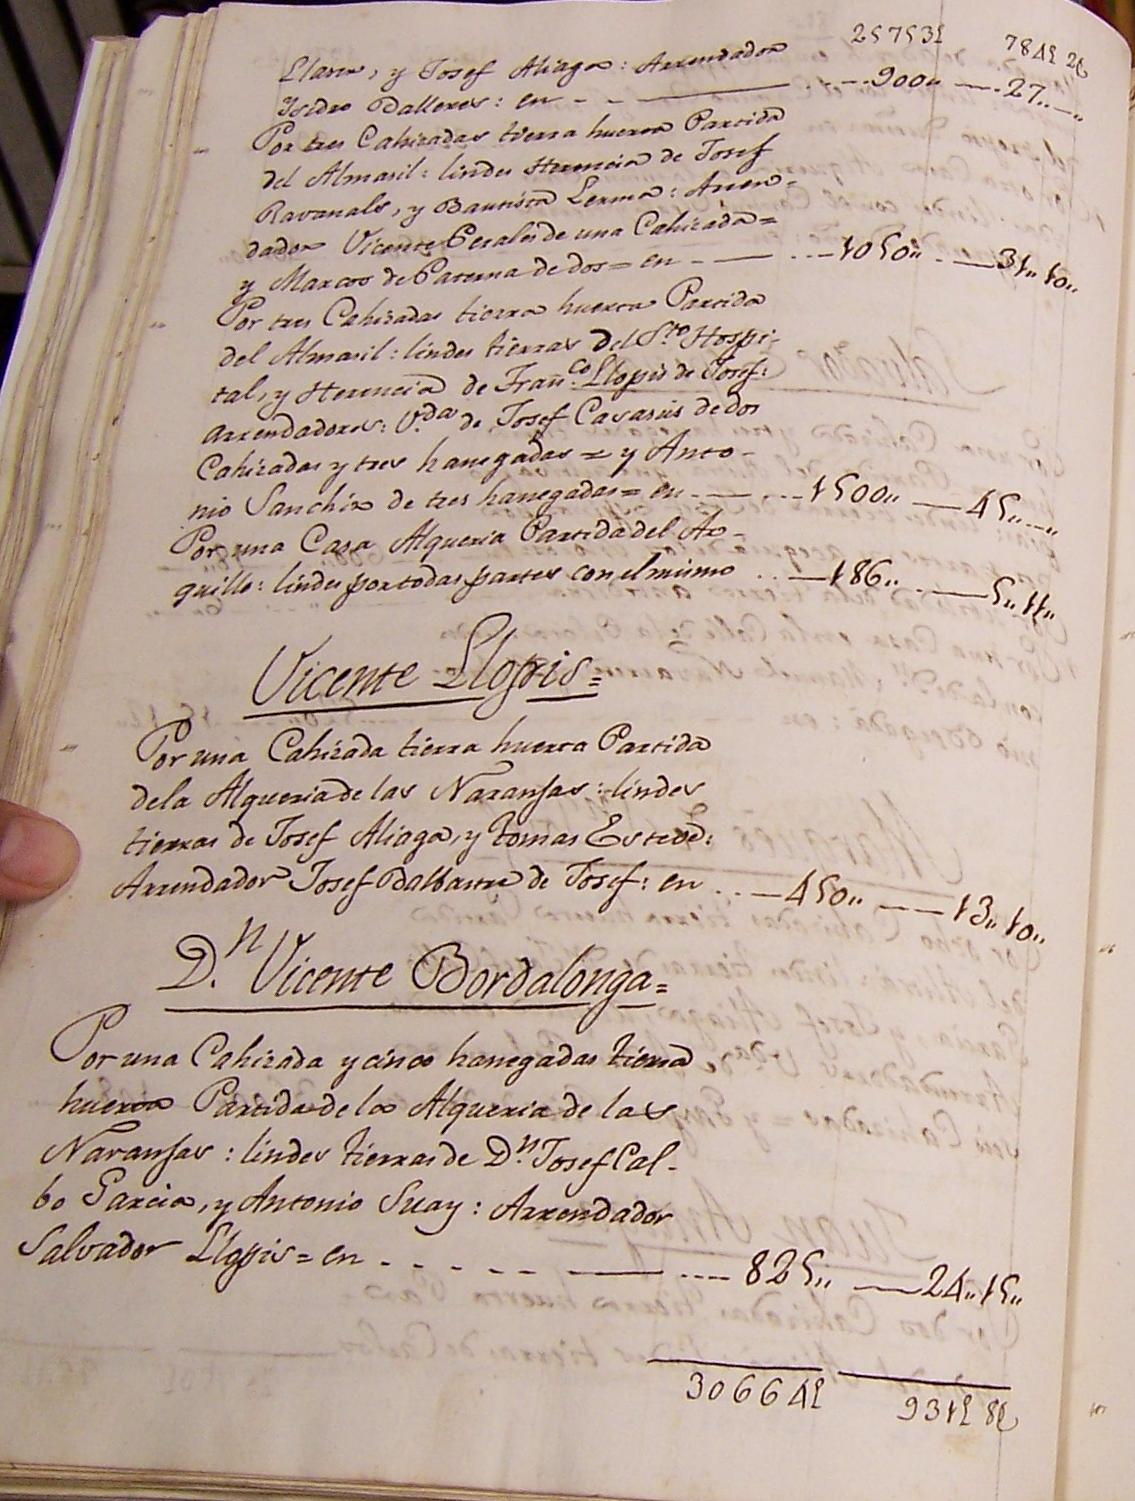 25753£ 784£ 2§
Llana, y Josef Aliaga: Arrendador
Isidro Dalleres: en - - ——— 900,, — 27,,—,,
Por tres Cahizadas tierra huerta Partida
del Almaril: lindes Herencia de Josef
Ravanals, y Bautista Lerma: Arren-
dador Vicente Perales de una Cahizada=
y Marcos de Paterna de dos= en - — 1050,, — 31,, 10,,
Por tres Cahizadas tierra huerta Partida
del Almaril: lindes tierras del Sto. Hospi-
tal, y Herencia de Franco. Llopis de Josef:
Arrendadores: Vda. de Josef Casasús de dos
Cahizadas y tres hanegadas = y Anto-
nio Sanchiz de tres hanegadas= en - — 1500,, — 45,,—,,
Por una Casa Alqueria Partida del Ar-
quillo: lindes por todas partes con el mismo — 186,, — 5,, 11,,
Vicente Llopis=
Por una Cahizada tierra huerta Partida
de la Alqueria de las Naranjas: lindes
tierras de Josef Aliaga, y tomas Esteve:
Arrendador Josef Dalbastre de Josef: en — 450,, — 13,, 10,,
D.n Vicente Bordalonga=
Por una Cahizada y cinco hanegadas tierra
huerta Partida de la Alqueria de las
Naranjas: lindes tierras de D.n Josef Cal-
bo Garcia, y Antonio Suay: Arrendador
Salvador Llopis= en - - - - - — 825,, — 24,, 15,,
30664£ 931£ 8§